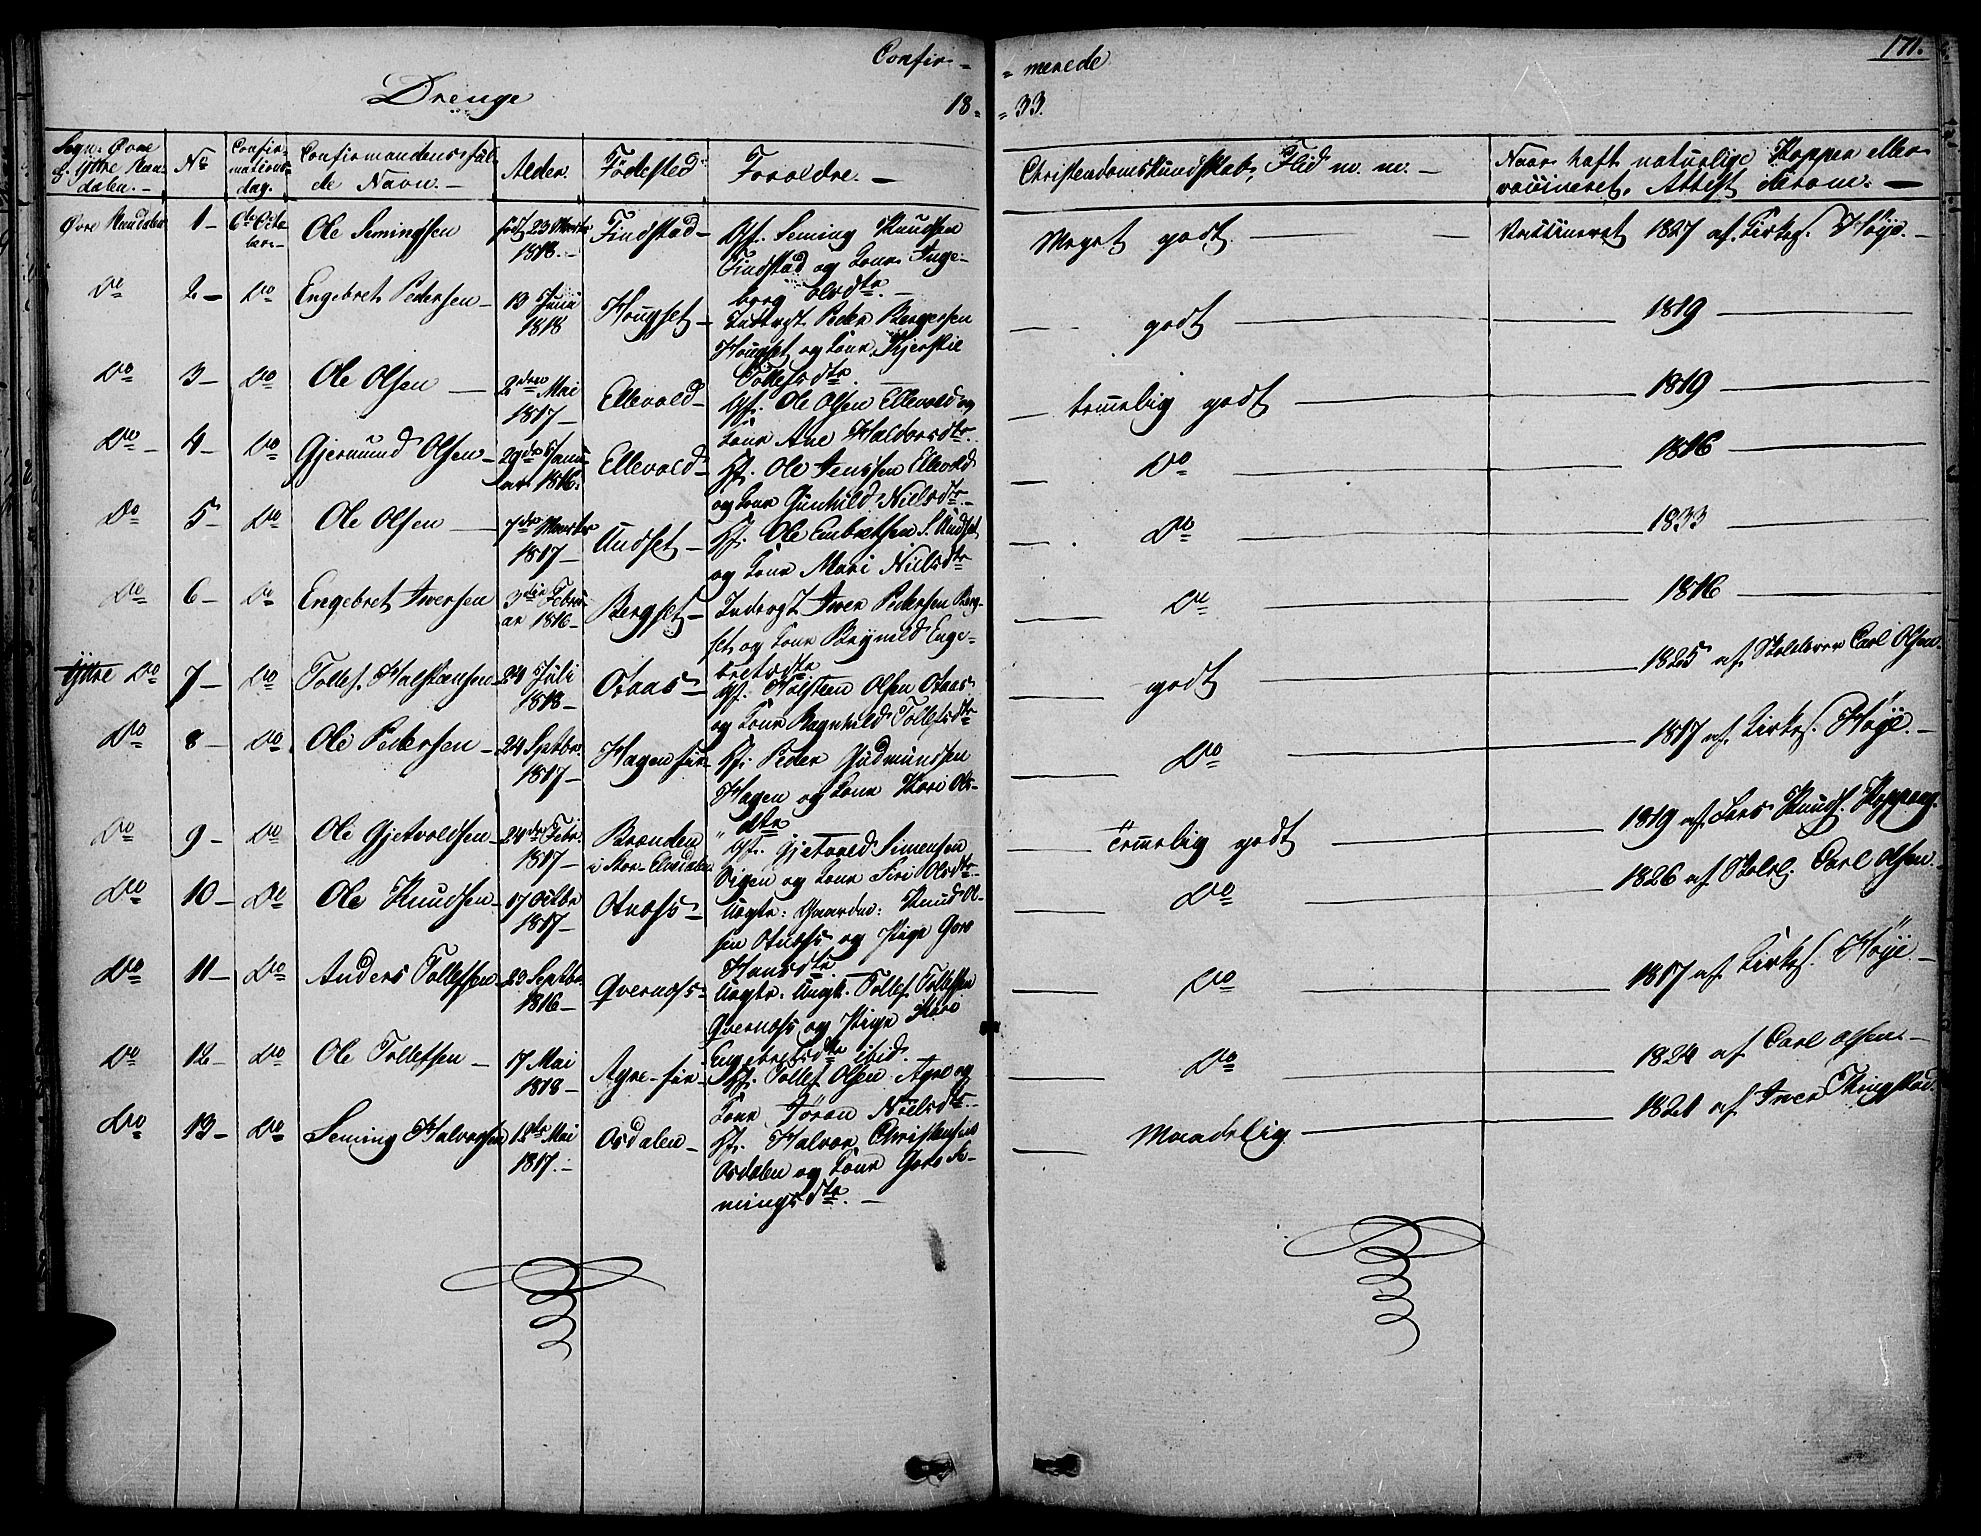 Confir-
= merede
171.
Drenge
18=
=33.
Sogn. Øvre & Ytre Rendalen.-
No
Confirmations dag.-
Confirmandens fulde Navn.-
Alder.
Fødested.
Forældre.-
Christendomskundskab, Flid m. m.-
Naar haft naturlige Kopper eller vaccineret, Attest derom.-
Øvre Rendalen 1- 6te Octobere- Ole Semingsen født 29 Marts 1818.- Findstad- Gf. Seming Knudsen
Findstad og Kone Inge-
borg Olsdtr.-
Meget godt.- Vaccineret 1827 af Kirkes. Høye.-
Do 2- Do Engebret Pedersen- 13 Junii 1818 Hougset- Inderst Peder Bergersen
Hougset og Kone Kjerstie
Tollefsdtr.
godt 1819
Do 3- Do Ole Olsen- 2den Mai 1817- Ellevold- Gf. Ole Olsen Ellevold og
Kone Ane Haldorsdtr.
temelig godt 1819
Do- 4- Do Gjermund Olsen- 29de Januar 1816. Ellevold- Hf. Ole Jenssen Ellevold
og Kone Gunhild Nielsdtr.
Do 1816
Do 5- Do Ole Olsen- 7de Marts 1817- Undset- Hf. Ole Embretsen S. Undset
og Kone Mari Nielsdtr
Do 1833
Do 6- Do Engebret Iversen 3die Februar 1816- Bergset- Inderst Iver Pedersen Berg-
set og Kone Brynild Enge-
bretsdtr
Do 1816
Ytre Do 7- Do Tollef Halstensen- 24 Juli 1818- Otaas- Gf. Holsteen Olsen Otaas
og Kone Ragnhild Tollefsdtr
godt 1825 af Skoleherer Carl Olsen.
Do 8- Do Ole Pedersen- 24 Septbr. 1817- Hagen Hf. Peder Gudmundsen
Hagen og Kone Kari Ols-
dtr
Do 1817 af Kirkes. Høye.-
Do 9- Do Ole Gjetvoldsen- 24de Febr. 1817- Brænden i Stor-Elvedalen Gf. Gjetvold Simensen
og Kone Siri Olsdtr
Temelig godt 1819 af Lars Knuds. Koppang.
Do 10- Do Ole Knudsen- 17 Octbr 1817- Otnæss- Uægte: Gaardm: Knud Ol-
sen Otnæss og Pige Goro
Hansdtr.
Do 1826 af Skolel. Carl Olsen-
Do 11- Do Anders Tollefsen- 23 Septbr. 1816- Qvernæss- Uægte. Ungk. Tollef Tollefsen
Qvernæss og Pige Kari
Engebretsdtr ibid.
Do 1817 af Kirkes. Høye-
Do 12- Do Ole Tollefsen- 17 Mai 1818- Agre- Hf. Tollef Olsen Agre og
Kone Jøran Nielsdtr.
Do 1824 af Carl Olsen.-
Do 13- Do Seming Halvorsen 12te Mai 1817.- Osdalen- Hf. Halvor Christensen
Osdalen og Kone Goro Se-
mingsdtr.-
Maadelig 1821 af Iver Thingstad.